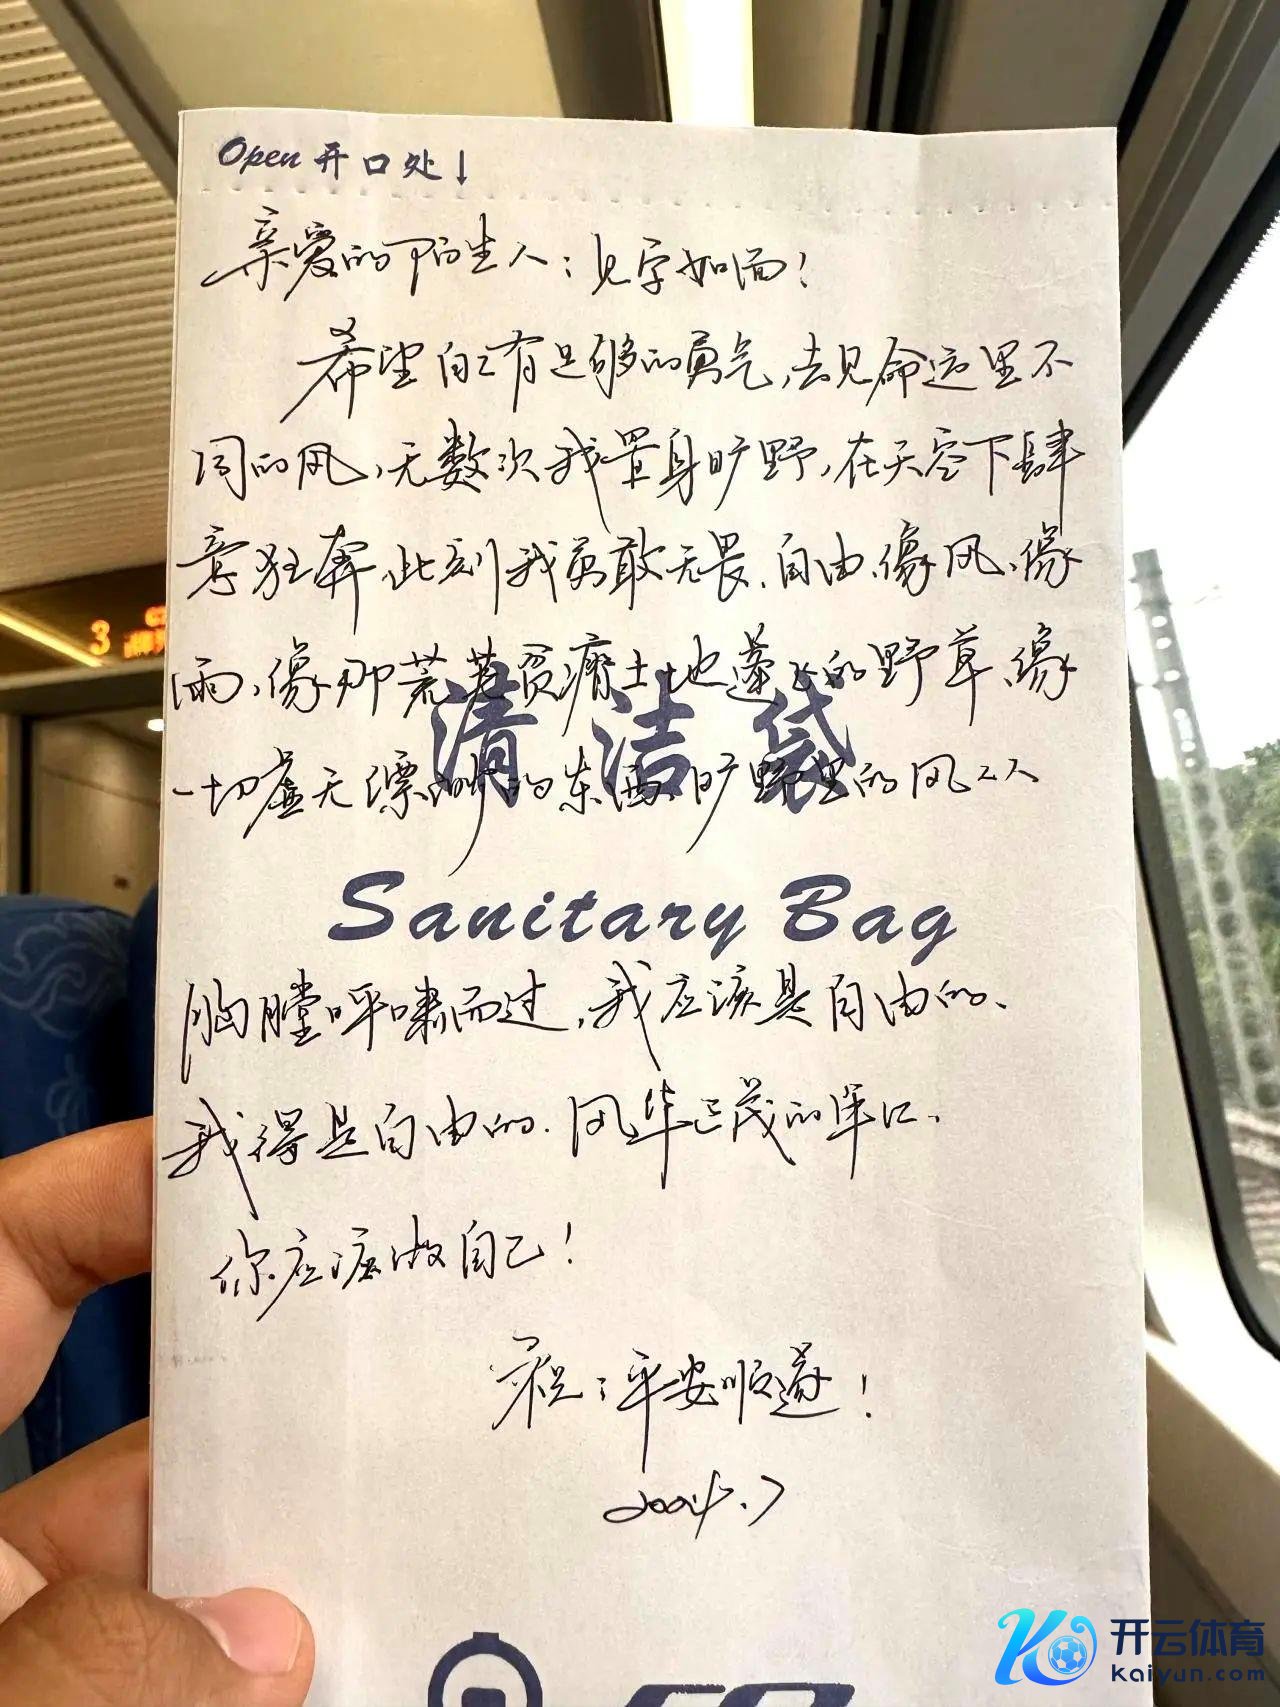 Open 开口处↓
亲爱的陌生人：见字如面！
希望自己有足够的勇气，去见命运里不
同的风，无数次我置身旷野，在天空下肆
意狂奔，此刻我勇敢无畏、自由、像风、像
雨、像那荒芜贫瘠土地蓬飞的野草、像
清洁袋
一切虚无漂渺的东西、旷野里的风从
Sanitary Bag
胸膛呼啸而过，我应该是自由的、
我得是自由的、风华正茂的年纪、
你应该做自己！
祝：平安顺遂！
3
开云体育
kaiyun.com